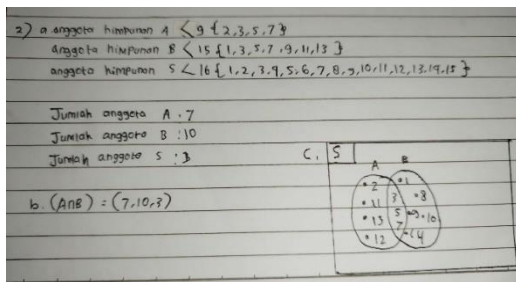 2) a. anggota himpunan A < 9 { 2,3,5,7 }
anggota himpunan B < 15 { 1,3,5,7,9,11,13 }
anggota himpunan S < 16 { 1,2,3,4,5,6,7,8,9,10,11,12,13,14,15 }
Jumlah anggota A : 7
Jumlah anggota B : 10
Jumlah anggota S : 3
C. S
A B
•2 •1
•11 3 •8
•13 5 •9 •10
•12 7 •14
b. (A∩B) = (7,10,3)